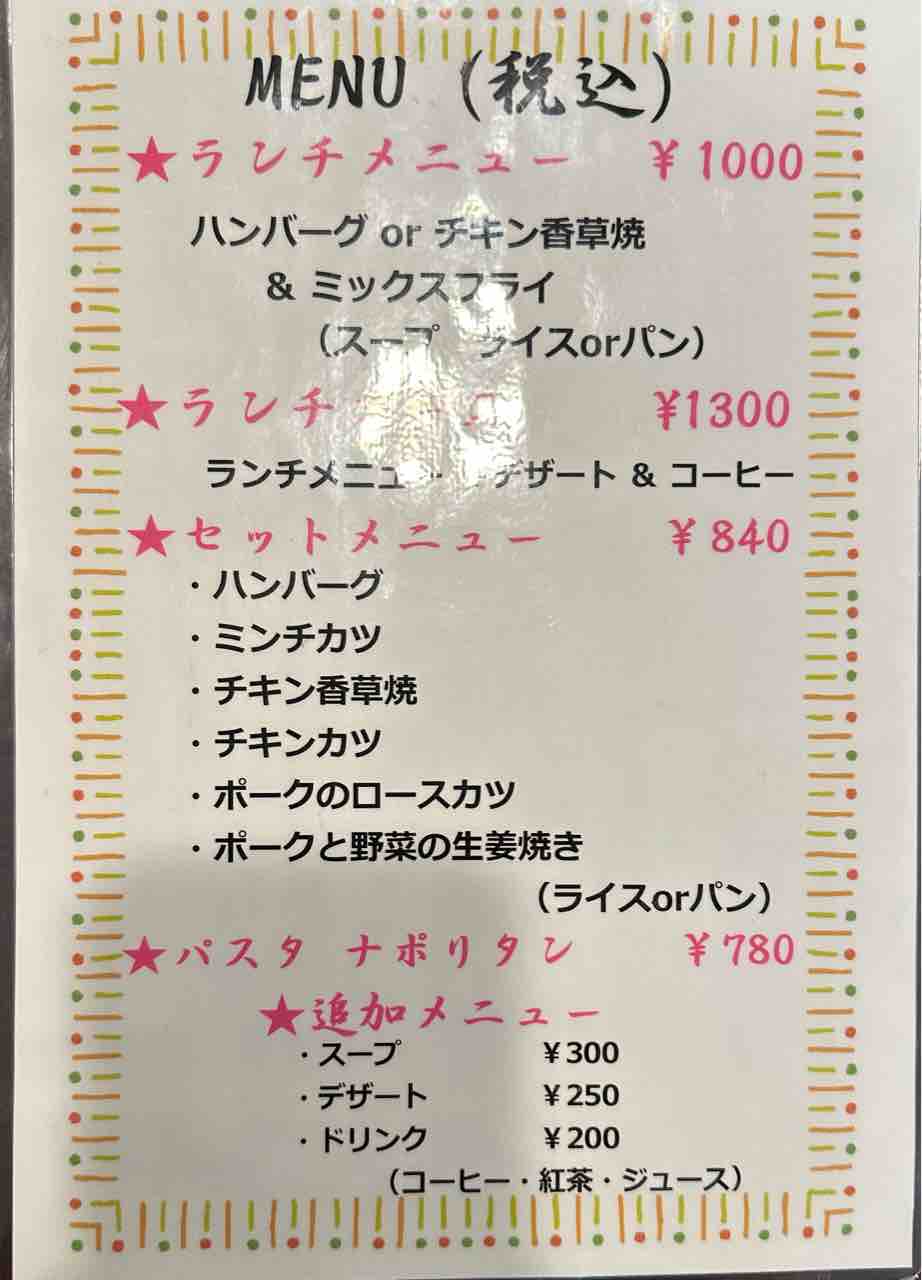 MENU (税込)
★ランチメニュー ¥1000
ハンバーグ or チキン香草焼
& ミックスフライ
(スープ ライスorパン)
★ランチ ¥1300
ランチメニュー デザート & コーヒー
★セットメニュー ¥840
・ハンバーグ
・ミンチカツ
・チキン香草焼
・チキンカツ
・ポークのロースカツ
・ポークと野菜の生姜焼き
(ライスorパン)
★パスタ ナポリタン ¥780
★追加メニュー
・スープ ¥300
・デザート ¥250
・ドリンク ¥200
(コーヒー・紅茶・ジュース)